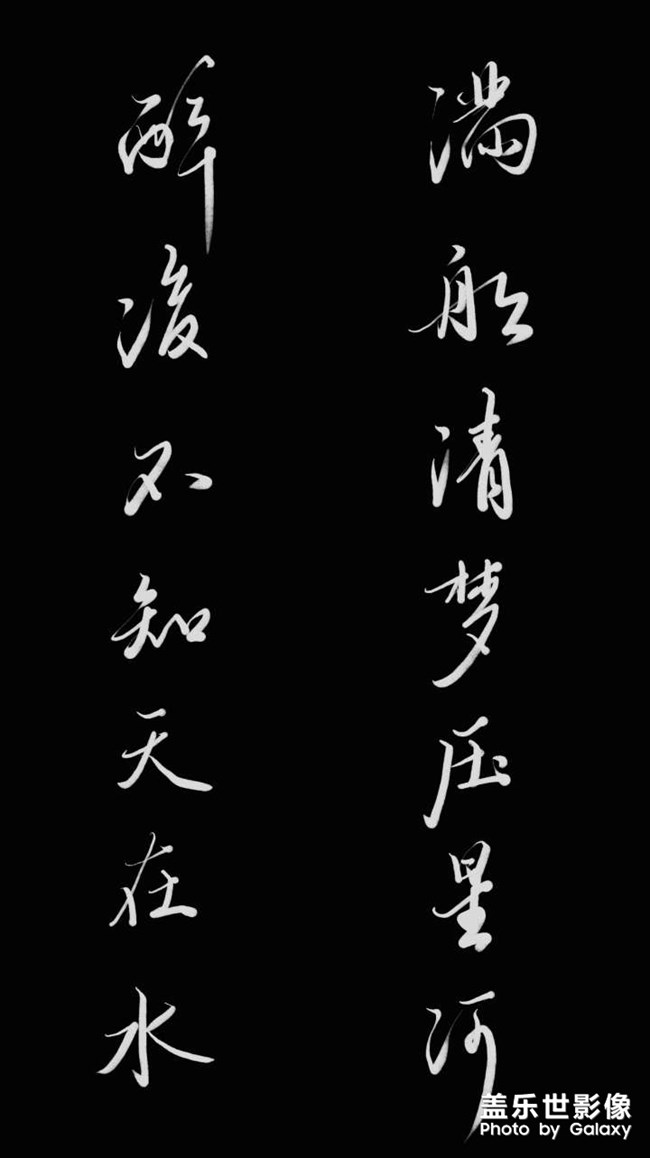 醉後不知天在水
满船清梦压星河
盖乐世影像
Photo by Galaxy